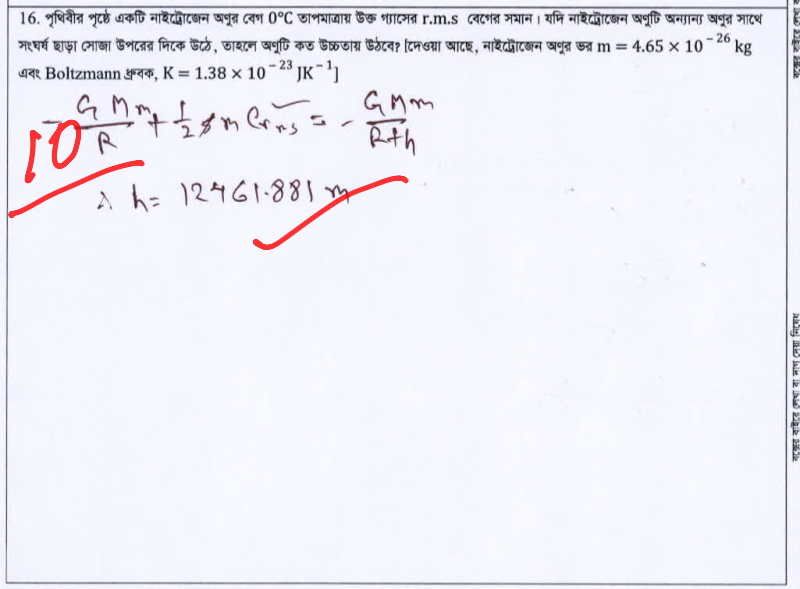 16. পৃথিবীর পৃষ্ঠে একটি নাইট্রোজেন অণুর বেগ 0°C তাপমাত্রায় উক্ত গ্যাসের r.m.s বেগের সমান। যদি নাইট্রোজেন অণুটি অন্যান্য অণুর সাথে
সংঘর্ষ ছাড়া সোজা উপরের দিকে উঠে, তাহলে অণুটি কত উচ্চতায় উঠবে? [দেওয়া আছে, নাইট্রোজেন অণুর ভর m = 4.65 × 10⁻²⁶ kg
এবং Boltzmann ধ্রুবক, K = 1.38 × 10⁻²³ JK⁻¹]
- GMm/R + 1/2 m C²rms = - GMm/R+h
10
∴ h = 12461.881 m